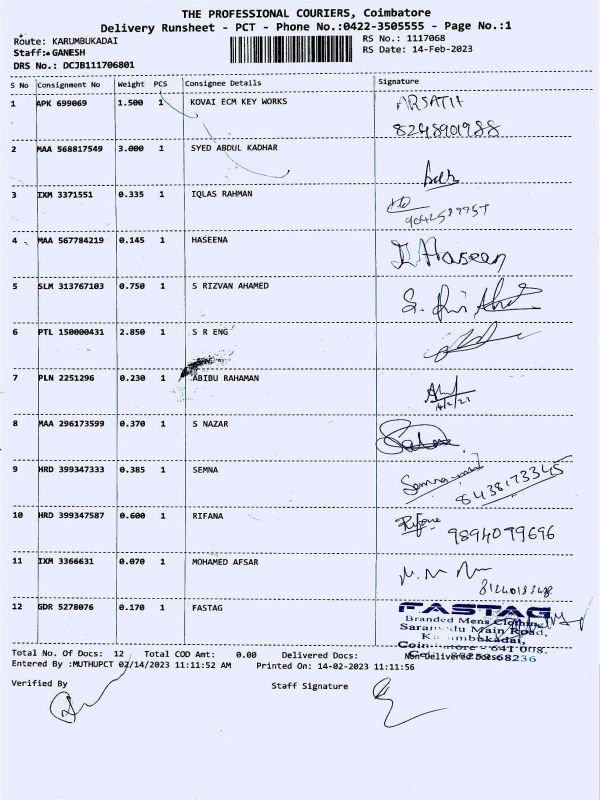 THE PROFESSIONAL COURIERS, Coimbatore
Delivery Runsheet - PCT - Phone No.:0422-3505555 - Page No.:1
Route: KARUMBUKADAI RS No.: 1117068
Staff: GANESH RS Date: 14-Feb-2023
DRS No.: DCJB111706801
S No Consignment No Weight PCS Consignee Details Signature
1 APK 699069 1.500 1 KOVAI ECM KEY WORKS ARSATH
8248901988
2 MAA 568817549 3.000 1 SYED ABDUL KADHAR
3 IXM 3371551 0.335 1 IQLAS RAHMAN
4 MAA 567784219 0.145 1 HASEENA Haseen
5 SLM 313767103 0.750 1 S RIZVAN AHAMED
6 PTL 150000431 2.850 1 S R ENG
7 PLN 2251296 0.230 1 ABIBU RAHAMAN
14/2/23
8 MAA 296173599 0.370 1 S NAZAR
9 HRD 399347333 0.385 1 SEMNA
8438173345
10 HRD 399347587 0.600 1 RIFANA
9894079696
11 IXM 3366631 0.070 1 MOHAMED AFSAR
12 GDR 5278076 0.170 1 FASTAG FASTAG
Branded Mens Clothing
Main Road,
Total No. Of Docs: 12 Total COD Amt: 0.00 Delivered Docs: Non-Delivered Docs:
Entered By :MUTHUPCT 02/14/2023 11:11:52 AM Printed On: 14-02-2023 11:11:56
Verified By Staff Signature